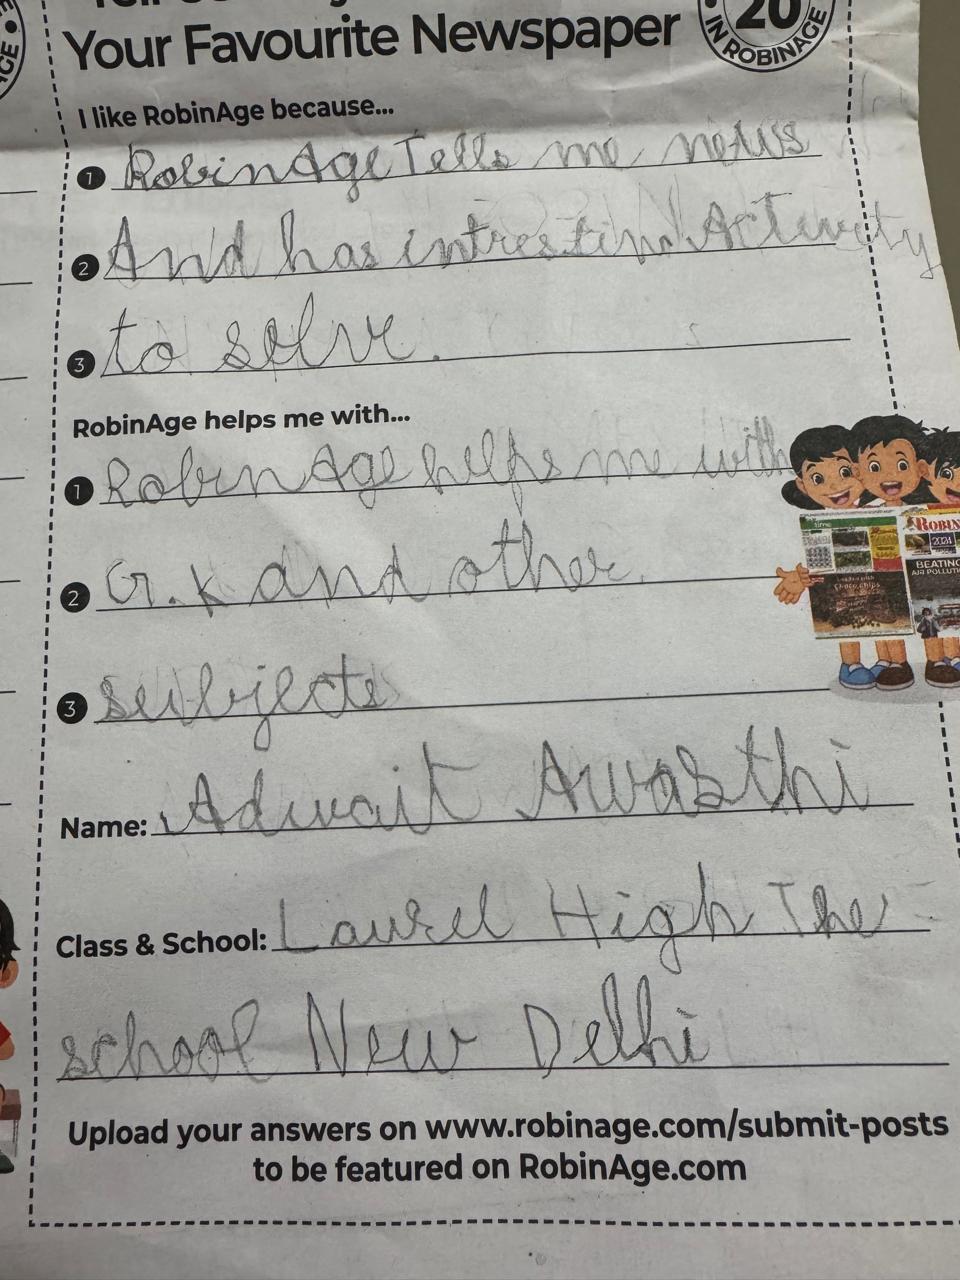 Your Favourite Newspaper
20
IN ROBINAGE
I like RobinAge because...
1 RobinAge Tells me news
2 And has intrestind Activity
3 to solve.
RobinAge helps me with...
1 RobinAge helps me with
2 G.K and other
3 subjects
ROBIN
2024
BEATING
AIR POLLUTI
Name: Adwait Awasthi
Class & School: Laurel High The
school New Delhi
Upload your answers on www.robinage.com/submit-posts
to be featured on RobinAge.com